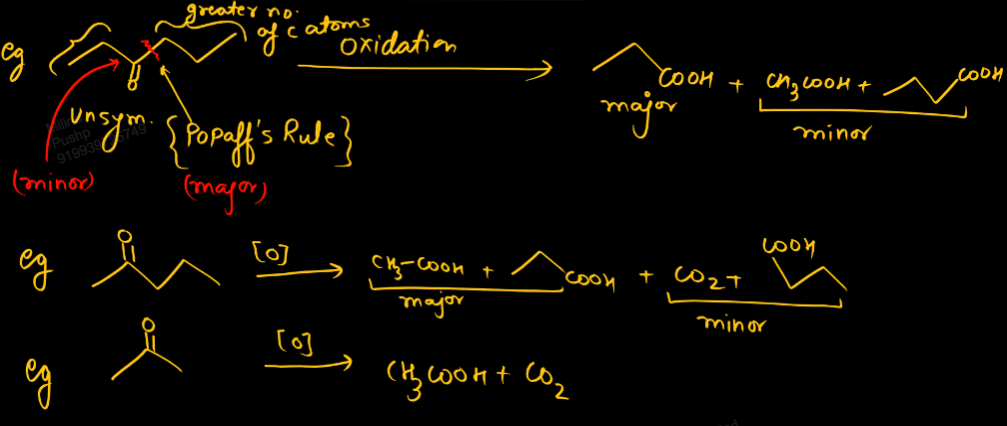 greater no.
of C atoms
eg
O
Oxidation
COOH + CH3COOH + COOH
major
minor
Unsym.
{Popaff's Rule}
(minor)
(major)
eg
O
[O]
CH3-COOH + COOH + CO2 + COOH
major
minor
eg
O
[O]
CH3COOH + CO2